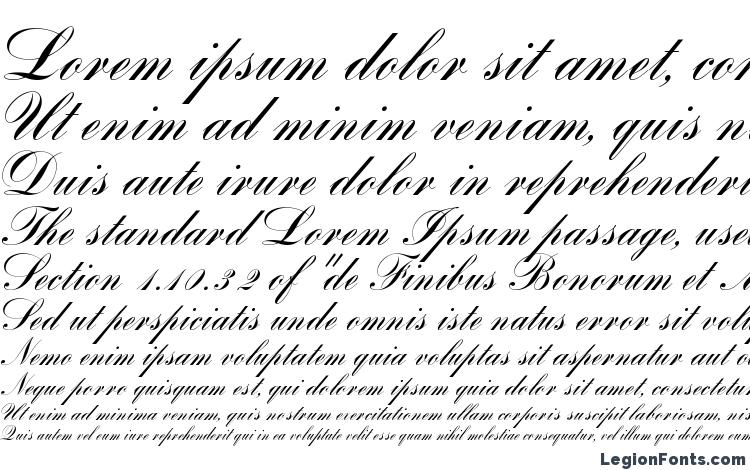 Lorem ipsum dolor sit amet, con
Ut enim ad minim veniam, quis n
Duis aute irure dolor in reprehenderi
The standard Lorem Ipsum passage, used
Section 1.10.32 of "de Finibus Bonorum et M
Sed ut perspiciatis unde omnis iste natus error sit volu
Nemo enim ipsam voluptatem quia voluptas sit aspernatur aut o
Neque porro quisquam est, qui dolorem ipsum quia dolor sit amet, consectetur
Ut enim ad minima veniam, quis nostrum exercitationem ullam corporis suscipit laboriosam, nis
Quis autem vel eum iure reprehenderit qui in ea voluptate velit esse quam nihil molestiae consequatur, vel illum qui dolorem eum
LegionFonts.com